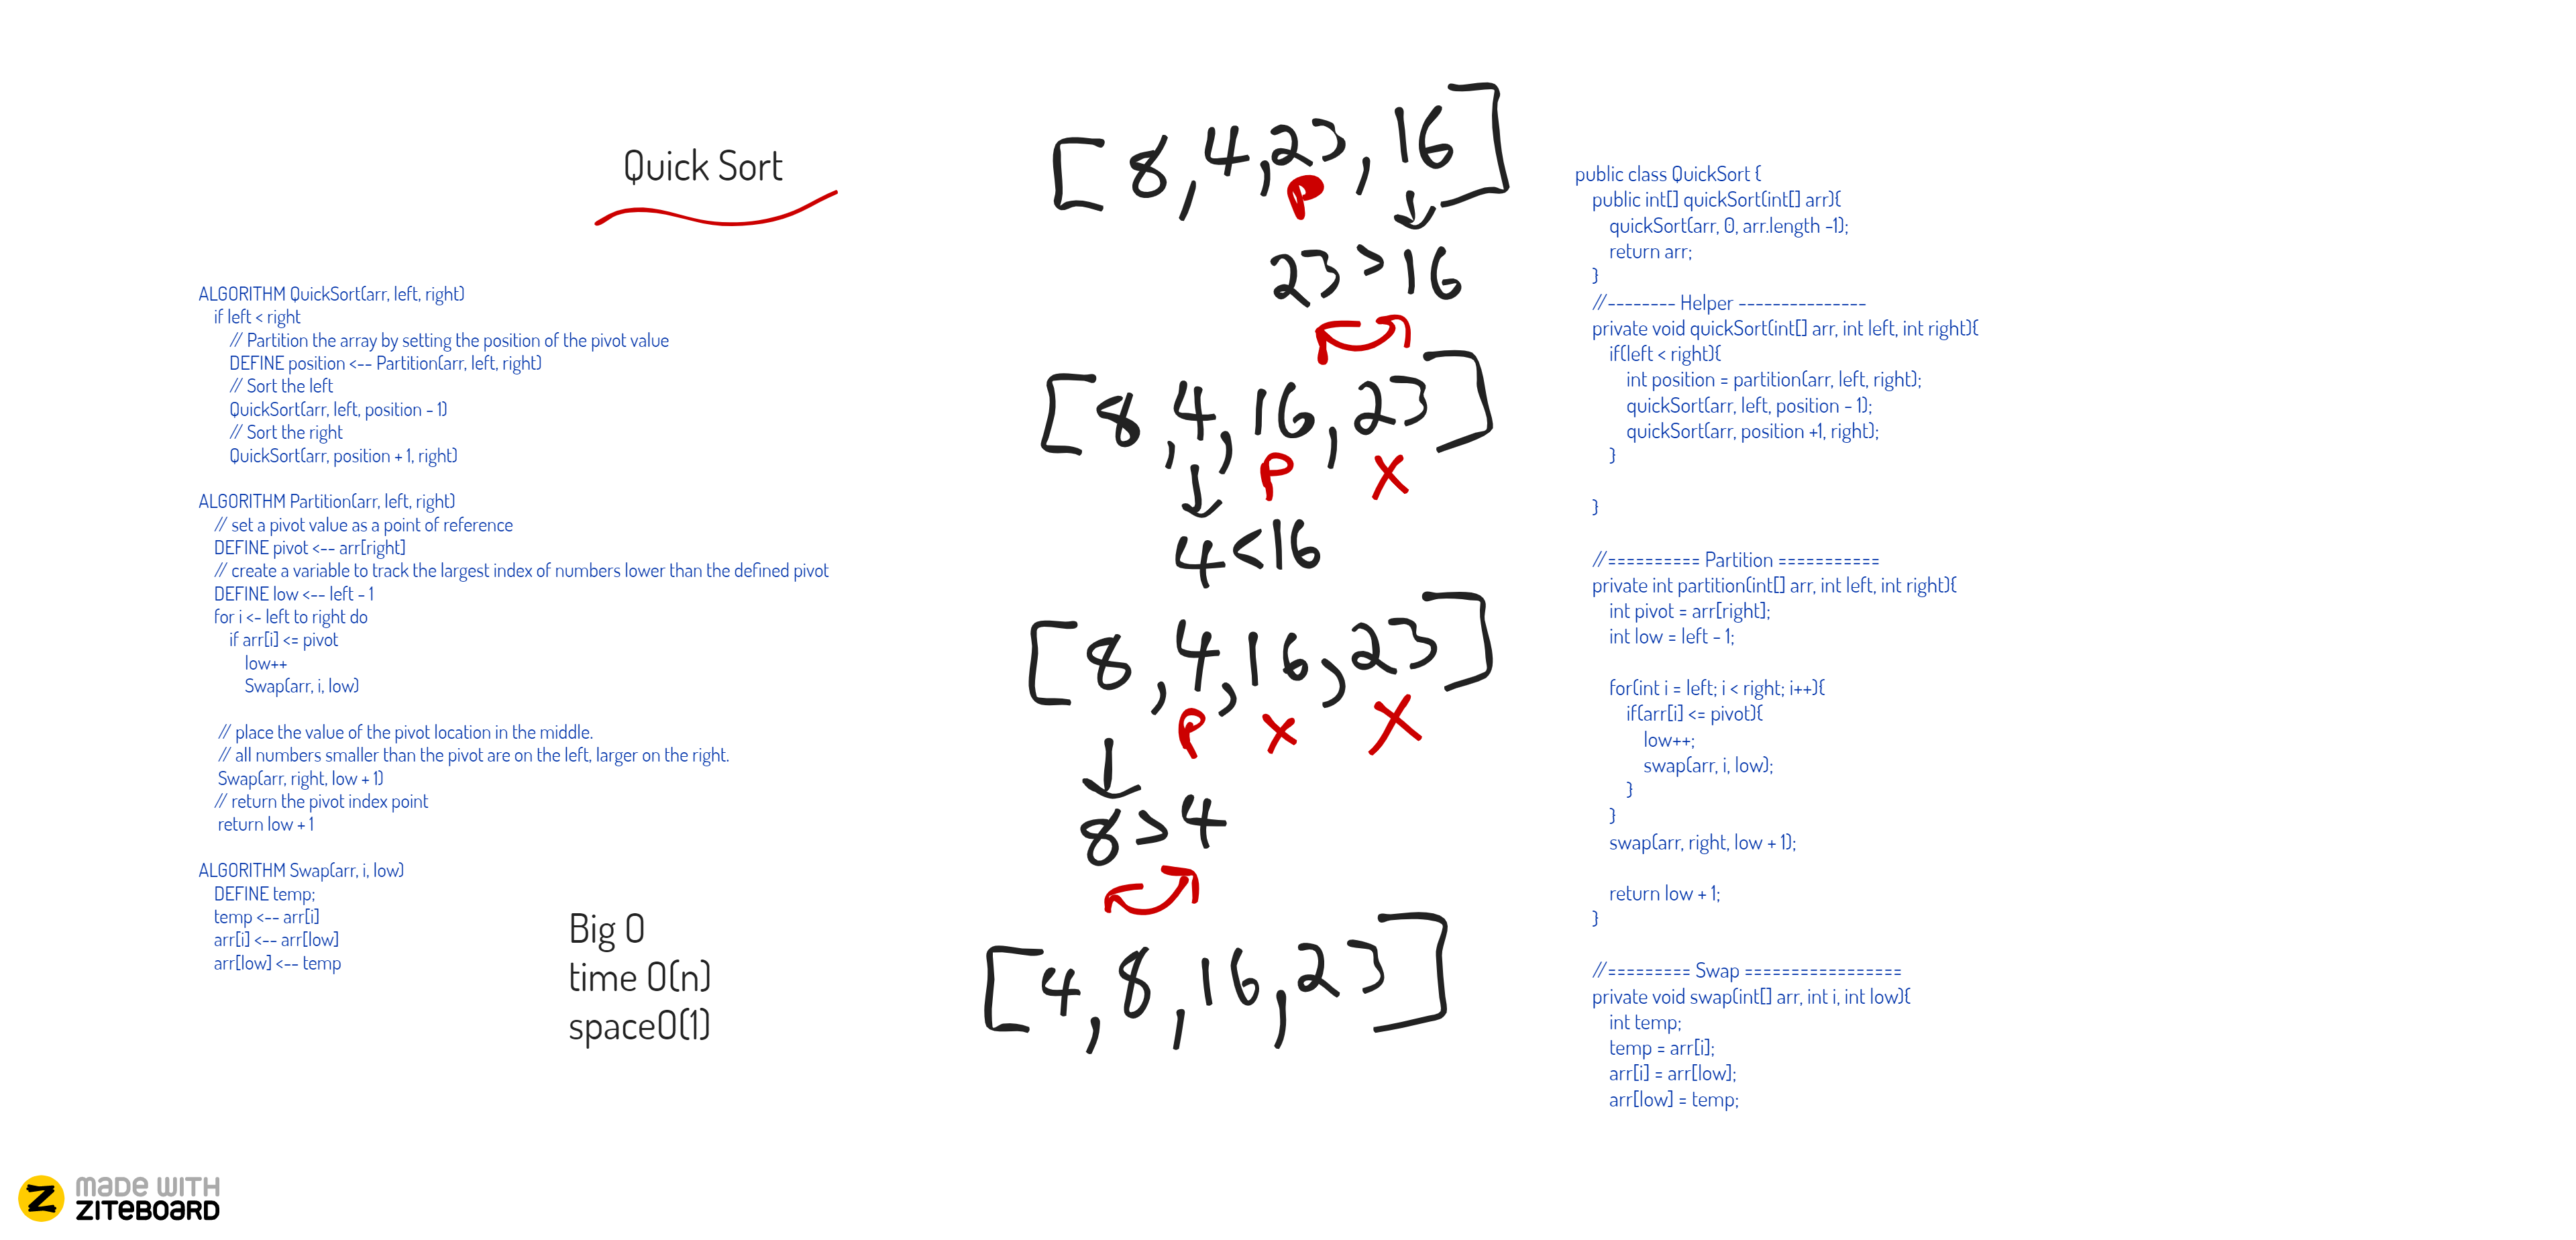 Quick Sort
ALGORITHM QuickSort(arr, left, right)
if left < right
// Partition the array by setting the position of the pivot value
DEFINE position <-- Partition(arr, left, right)
// Sort the left
QuickSort(arr, left, position - 1)
// Sort the right
QuickSort(arr, position + 1, right)
ALGORITHM Partition(arr, left, right)
// set a pivot value as a point of reference
DEFINE pivot <-- arr[right]
// create a variable to track the largest index of numbers lower than the defined pivot
DEFINE low <-- left - 1
for i <- left to right do
if arr[i] <= pivot
low++
Swap(arr, i, low)
// place the value of the pivot location in the middle.
// all numbers smaller than the pivot are on the left, larger on the right.
Swap(arr, right, low + 1)
// return the pivot index point
return low + 1
ALGORITHM Swap(arr, i, low)
DEFINE temp;
temp <-- arr[i]
arr[i] <-- arr[low]
arr[low] <-- temp
Big O
time O(n)
spaceO(1)
[8,4,23,16]
P
23 > 16
[8,4,16,23]
P X
4<16
[8,4,16,23]
P X X
8>4
[4,8,16,23]
public class QuickSort {
public int[] quickSort(int[] arr){
quickSort(arr, 0, arr.length -1);
return arr;
}
//-------- Helper ---------------
private void quickSort(int[] arr, int left, int right){
if(left < right){
int position = partition(arr, left, right);
quickSort(arr, left, position - 1);
quickSort(arr, position +1, right);
}
}
//========== Partition ===========
private int partition(int[] arr, int left, int right){
int pivot = arr[right];
int low = left - 1;
for(int i = left; i < right; i++){
if(arr[i] <= pivot){
low++;
swap(arr, i, low);
}
}
swap(arr, right, low + 1);
return low + 1;
}
//========= Swap =================
private void swap(int[] arr, int i, int low){
int temp;
temp = arr[i];
arr[i] = arr[low];
arr[low] = temp;
Z MADE WITH
ZITEBOARD